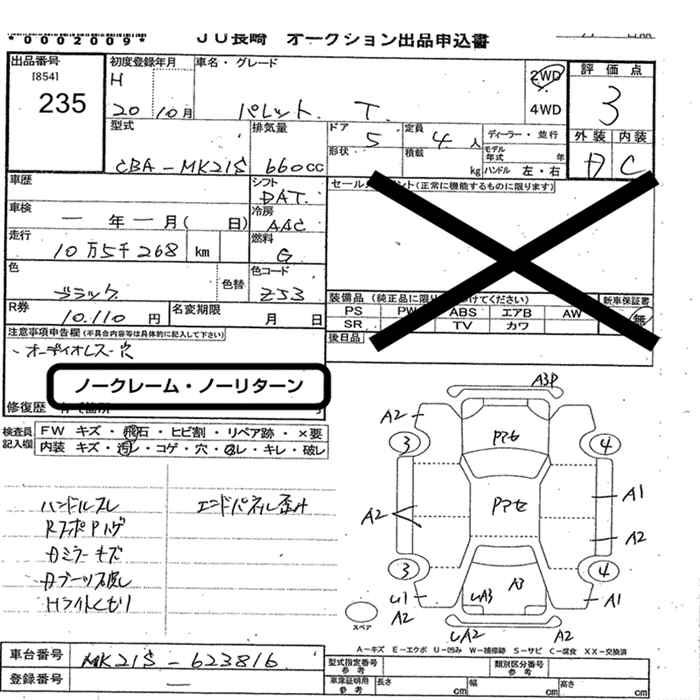 *0002009*
JU長崎 オークション出品申込書
出品番号
[854]
235
初度登録年月
H
20 10月
車名・グレード
パレット T
2WD
4WD
評価点
3
外装 内装
D C
型式
CBA-MK21S
排気量
660cc
ドア
5
形状
定員
4人
積載
kg
ディーラー・並行
モデル年式 年
ハンドル 左・右
車歴
シフト
DAT
車検
ー年ー月( 日)
冷房
AAC
走行
10万5千268 km
燃料
G
色
ブラック
色替
色コード
ZJ3
R券
10,110円
名変期限
月 日
セール
ント(正常に機能するものに限ります)
装備品(純正品に限り
けてください)
新車保証書
無
PS PW ABS エアB AW
SR TV カワ
後日品
注意事項申告欄(不具合内容等は具体的に記入して下さい)
・オーディオレス穴
ノークレーム・ノーリターン
修復歴
検査員記入欄
FW キズ・飛石・ヒビ割・リペア跡・×要
内装 キズ・汚レ・コゲ・穴・凹レ・キレ・破レ
ハンドルスレ
RスポPハゲ
Dミラーキズ
Dブーツ破レ
Hライトくもり
エンドパネル歪ミ
A3P
A2
3
4
Pアセ
Pアセ
A2
A1
A2
3
4
U1
A2
UA3
A3
A1
UA2
A2
スペア
A-キズ E-エクボ U-凹み W-補修跡 S-サビ C-腐食 XX-交換済
車台番号
MK21S-623816
登録番号
ー
型式指定番号
参考
類別区分番号
参考
車庫証明用
参考
長さ cm
幅 cm
高さ cm